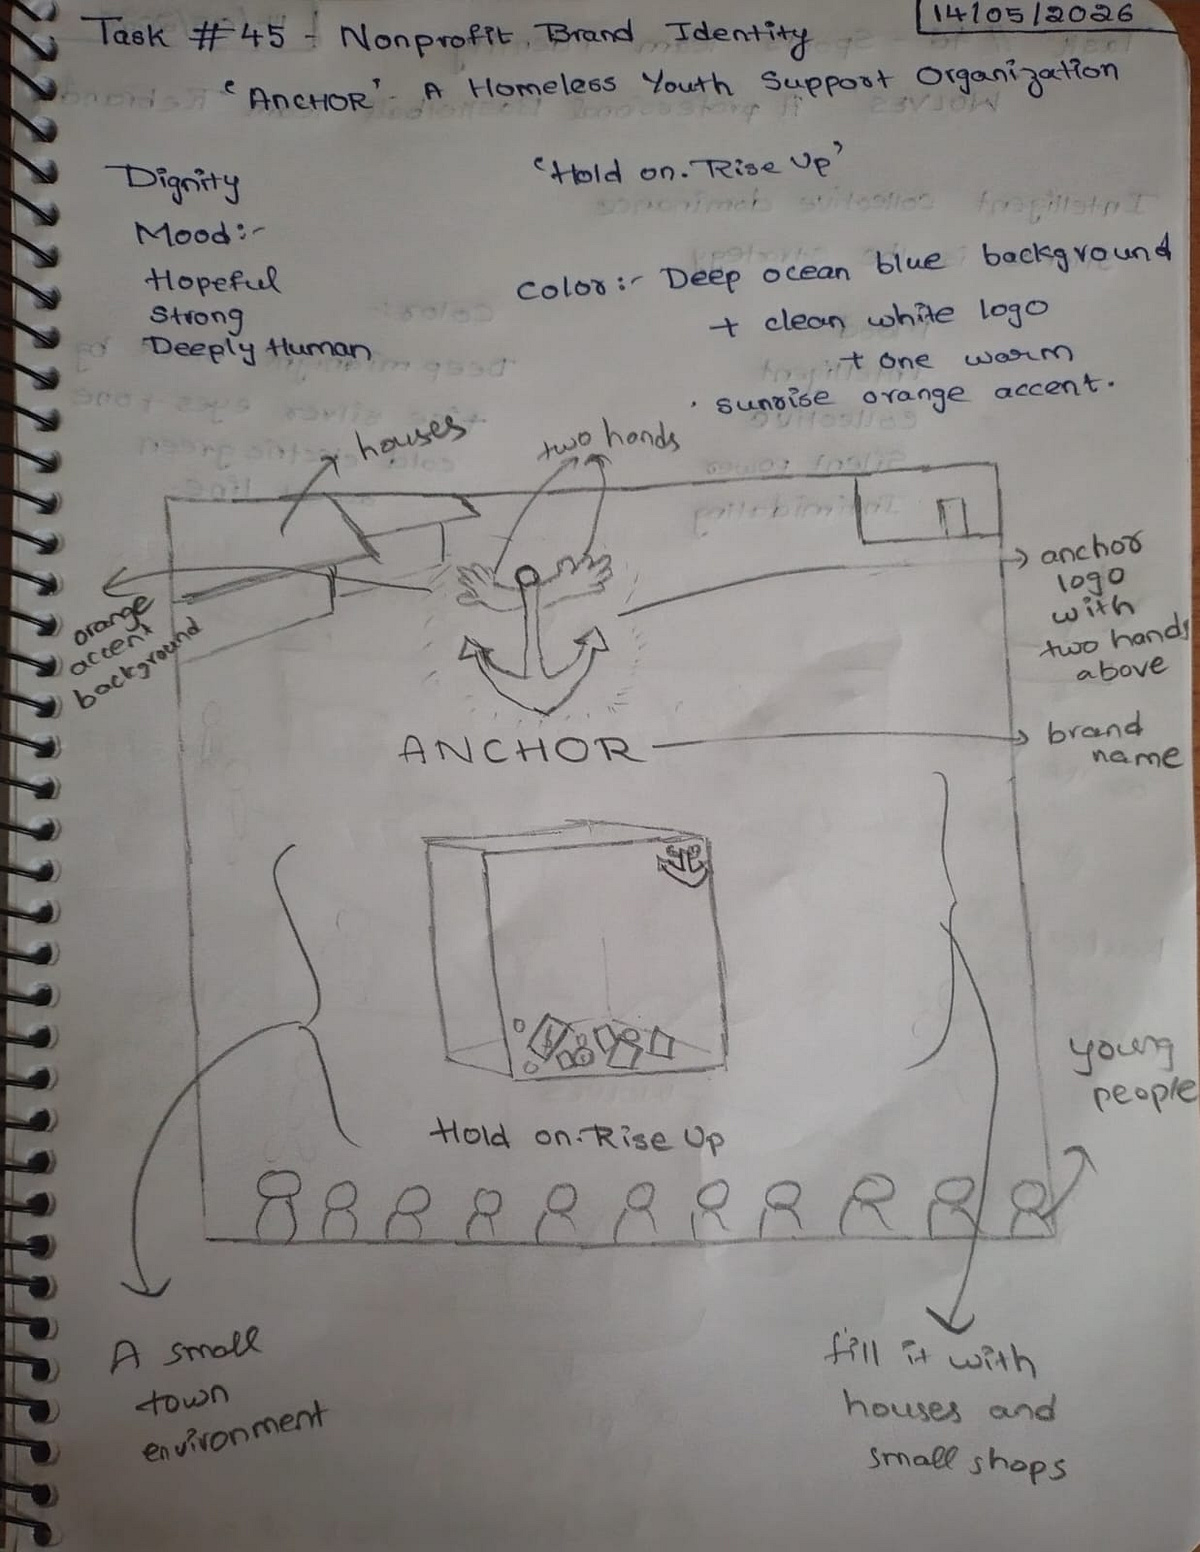 14/05/2026
Task #45 - Nonprofit Brand Identity
'ANCHOR' - A Homeless Youth Support Organization
Dignity
Mood:-
Hopeful
Strong
Deeply Human
'Hold on. Rise Up'
Color:- Deep ocean blue background
+ clean white logo
+ one warm
sunrise orange accent.
houses
two hands
orange
accent
background
anchor
logo
with
two hands
above
ANCHOR
brand
name
young
people
Hold on. Rise Up
A small
town
environment
fill it with
houses and
small shops